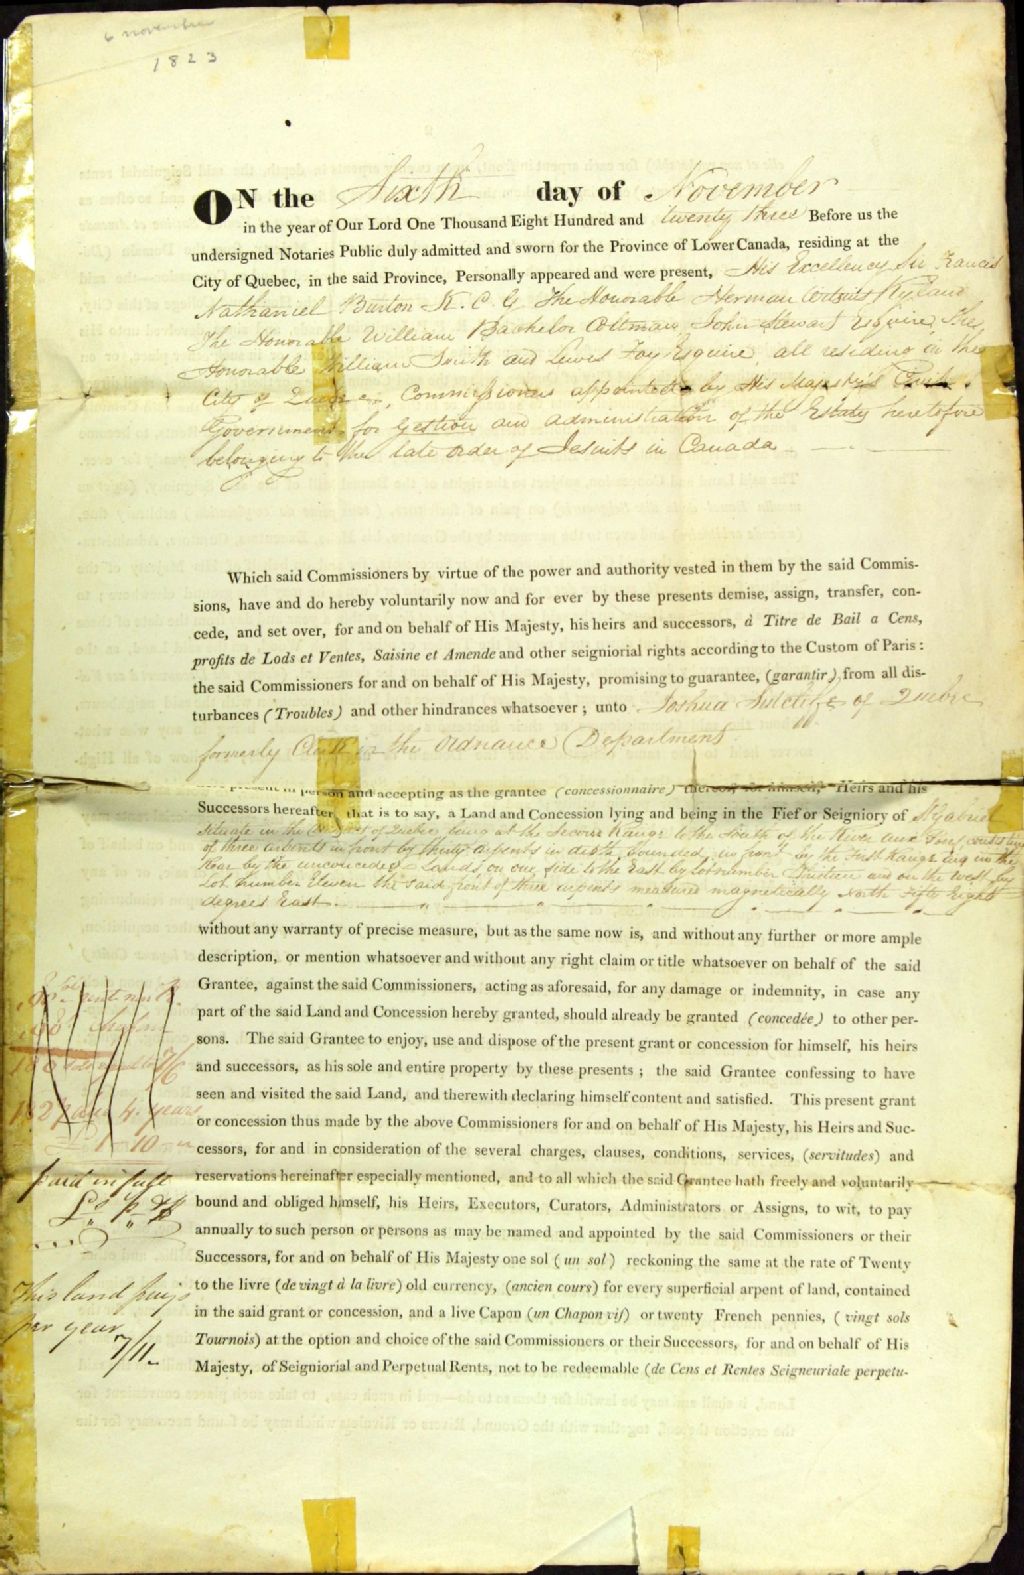 6 november
1823
ON the Sixth day of November
in the year of Our Lord One Thousand Eight Hundred and twenty three Before us the
undersigned Notaries Public duly admitted and sworn for the Province of Lower Canada, residing at the
City of Quebec, in the said Province, Personally appeared and were present, His Excellency Sir Francis
Nathaniel Burton K. C. G. The Honorable Herman Ryland
The Honorable William Bachelor Coltman, John Stewart Esquire, the
Honorable William Smith and Lewis Foy Esquire, all residing in the
City of Quebec, Commissioners appointed by His Majesty's
Government for Gestion and Administration of the Estates heretofore
belonging to the late order of Jesuits in Canada
Which said Commissioners by virtue of the power and authority vested in them by the said Commis-
sions, have and do hereby voluntarily now and for ever by these presents demise, assign, transfer, con-
cede, and set over, for and on behalf of His Majesty, his heirs and successors, à Titre de Bail a Cens,
profits de Lods et Ventes, Saisine et Amende and other seigniorial rights according to the Custom of Paris :
the said Commissioners for and on behalf of His Majesty, promising to guarantee, (garantir) from all dis-
turbances (Troubles) and other hindrances whatsoever ; unto Joshua Sutcliffe of Quebec
formerly Clerk in the Ordnance Department
present in person and accepting as the grantee (concessionnaire) thereof, for himself, Heirs and his
Successors hereafter, that is to say, a Land and Concession lying and being in the Fief or Seigniory of St Gabriel
situate in the of Quebec, being at the Second Range to the South of the River aux Pins,
of three arpents in front by thirty arpents in depth, bounded, in front by the First Range and in the
Rear by the unconceded Lands, on one side to the East by Lot number Thirteen and on the West by
Lot number Eleven the said front of three arpents measured magnetically North Fifty Eight
degrees East.
without any warranty of precise measure, but as the same now is, and without any further or more ample
description, or mention whatsoever and without any right claim or title whatsoever on behalf of the said
Grantee, against the said Commissioners, acting as aforesaid, for any damage or indemnity, in case any
part of the said Land and Concession hereby granted, should already be granted (concedée) to other per-
sons. The said Grantee to enjoy, use and dispose of the present grant or concession for himself, his heirs
and successors, as his sole and entire property by these presents ; the said Grantee confessing to have
seen and visited the said Land, and therewith declaring himself content and satisfied. This present grant
or concession thus made by the above Commissioners for and on behalf of His Majesty, his Heirs and Suc-
cessors, for and in consideration of the several charges, clauses, conditions, services, (servitudes) and
reservations hereinafter especially mentioned, and to all which the said Grantee hath freely and voluntarily
bound and obliged himself, his Heirs, Executors, Curators, Administrators or Assigns, to wit, to pay
annually to such person or persons as may be named and appointed by the said Commissioners or their
Successors, for and on behalf of His Majesty one sol (un sol) reckoning the same at the rate of Twenty
to the livre (de vingt à la livre) old currency, (ancien cours) for every superficial arpent of land, contained
in the said grant or concession, and a live Capon (un Chapon vif) or twenty French pennies, ( vingt sols
Tournois) at the option and choice of the said Commissioners or their Successors, for and on behalf of His
Majesty, of Seigniorial and Perpetual Rents, not to be redeemable (de Cens et Rentes Seigneuriale perpetu-
4 years
paid in full
This land pays
per year
7/11